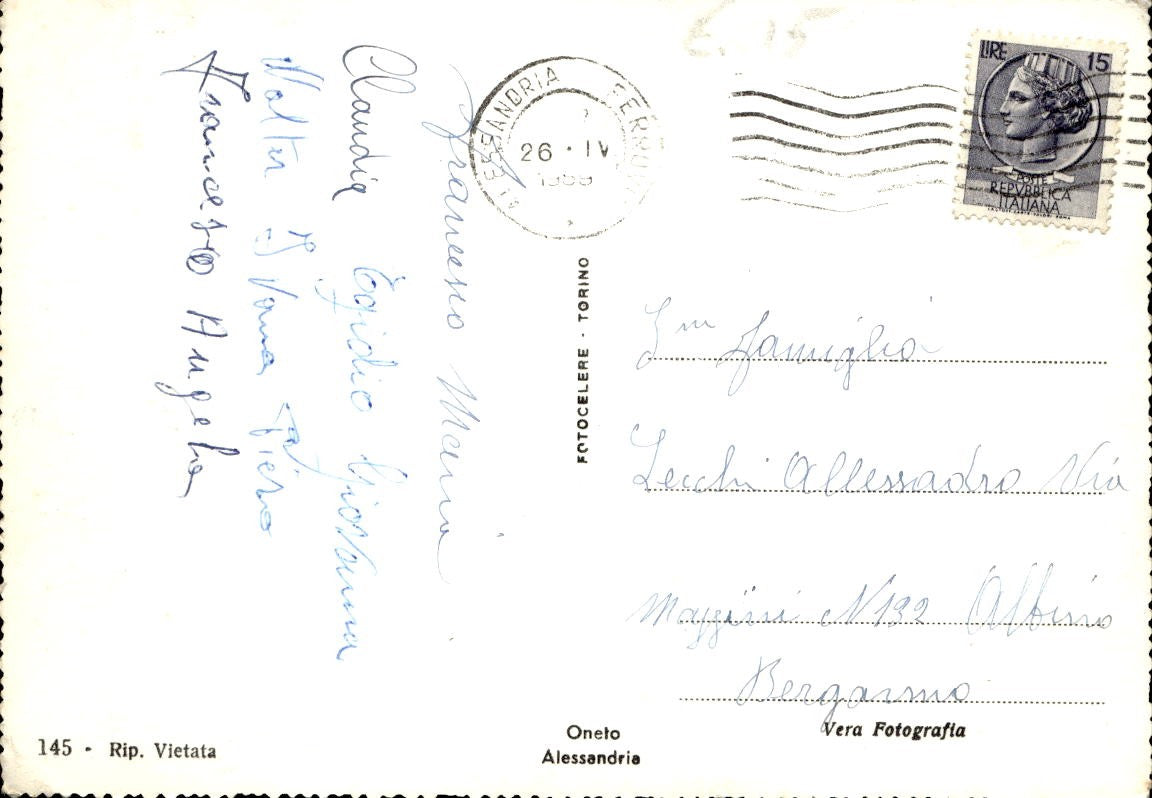 £ 15
ALESSANDRIA FERROVIA
26 · IV
LIRE 15
POSTE
REPVBBLICA
ITALIANA
Francesco Maria
Claudia Egidio Giovanna
Walter Ivana Piero
Francesco Angela
FOTOCELERE - TORINO
famiglia
Lecchi Allessadro Via
Mazzini N 132 Albino
Bergamo
Vera Fotografia
Oneto
Alessandria
145 - Rip. Vietata